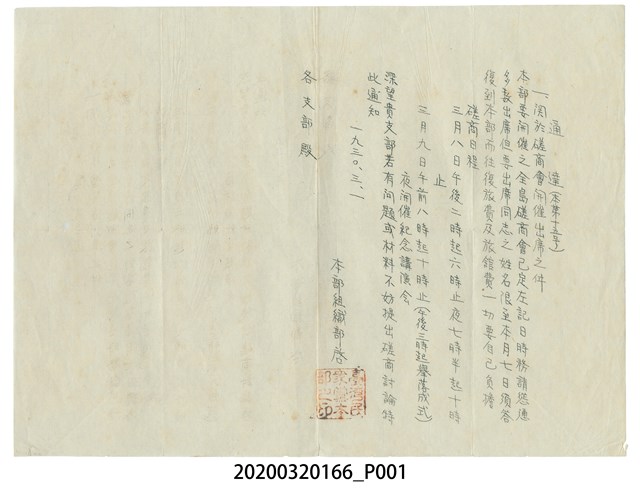 通 達(本第十五号)
一、関於磋商會開催出席之件
本部要開催之全島磋商會已定左記日時務請慫慂
多数出席但要出席同志之姓名限至本月七日須答
復到本部而往復旅費及旅館費一切要自己負擔
磋商日程
三月八日午後二時起六時止夜七時半起十時
止
三月九日午前八時起十時止(午後三時起舉落成式)
夜開催紀念講演会
深望貴支部若有问題或材料不妨提出磋商討論特
此通知
一九三〇、三、一
本部組織部啓
臺灣民
眾黨本
部之印
各支部殿
20200320166_P001